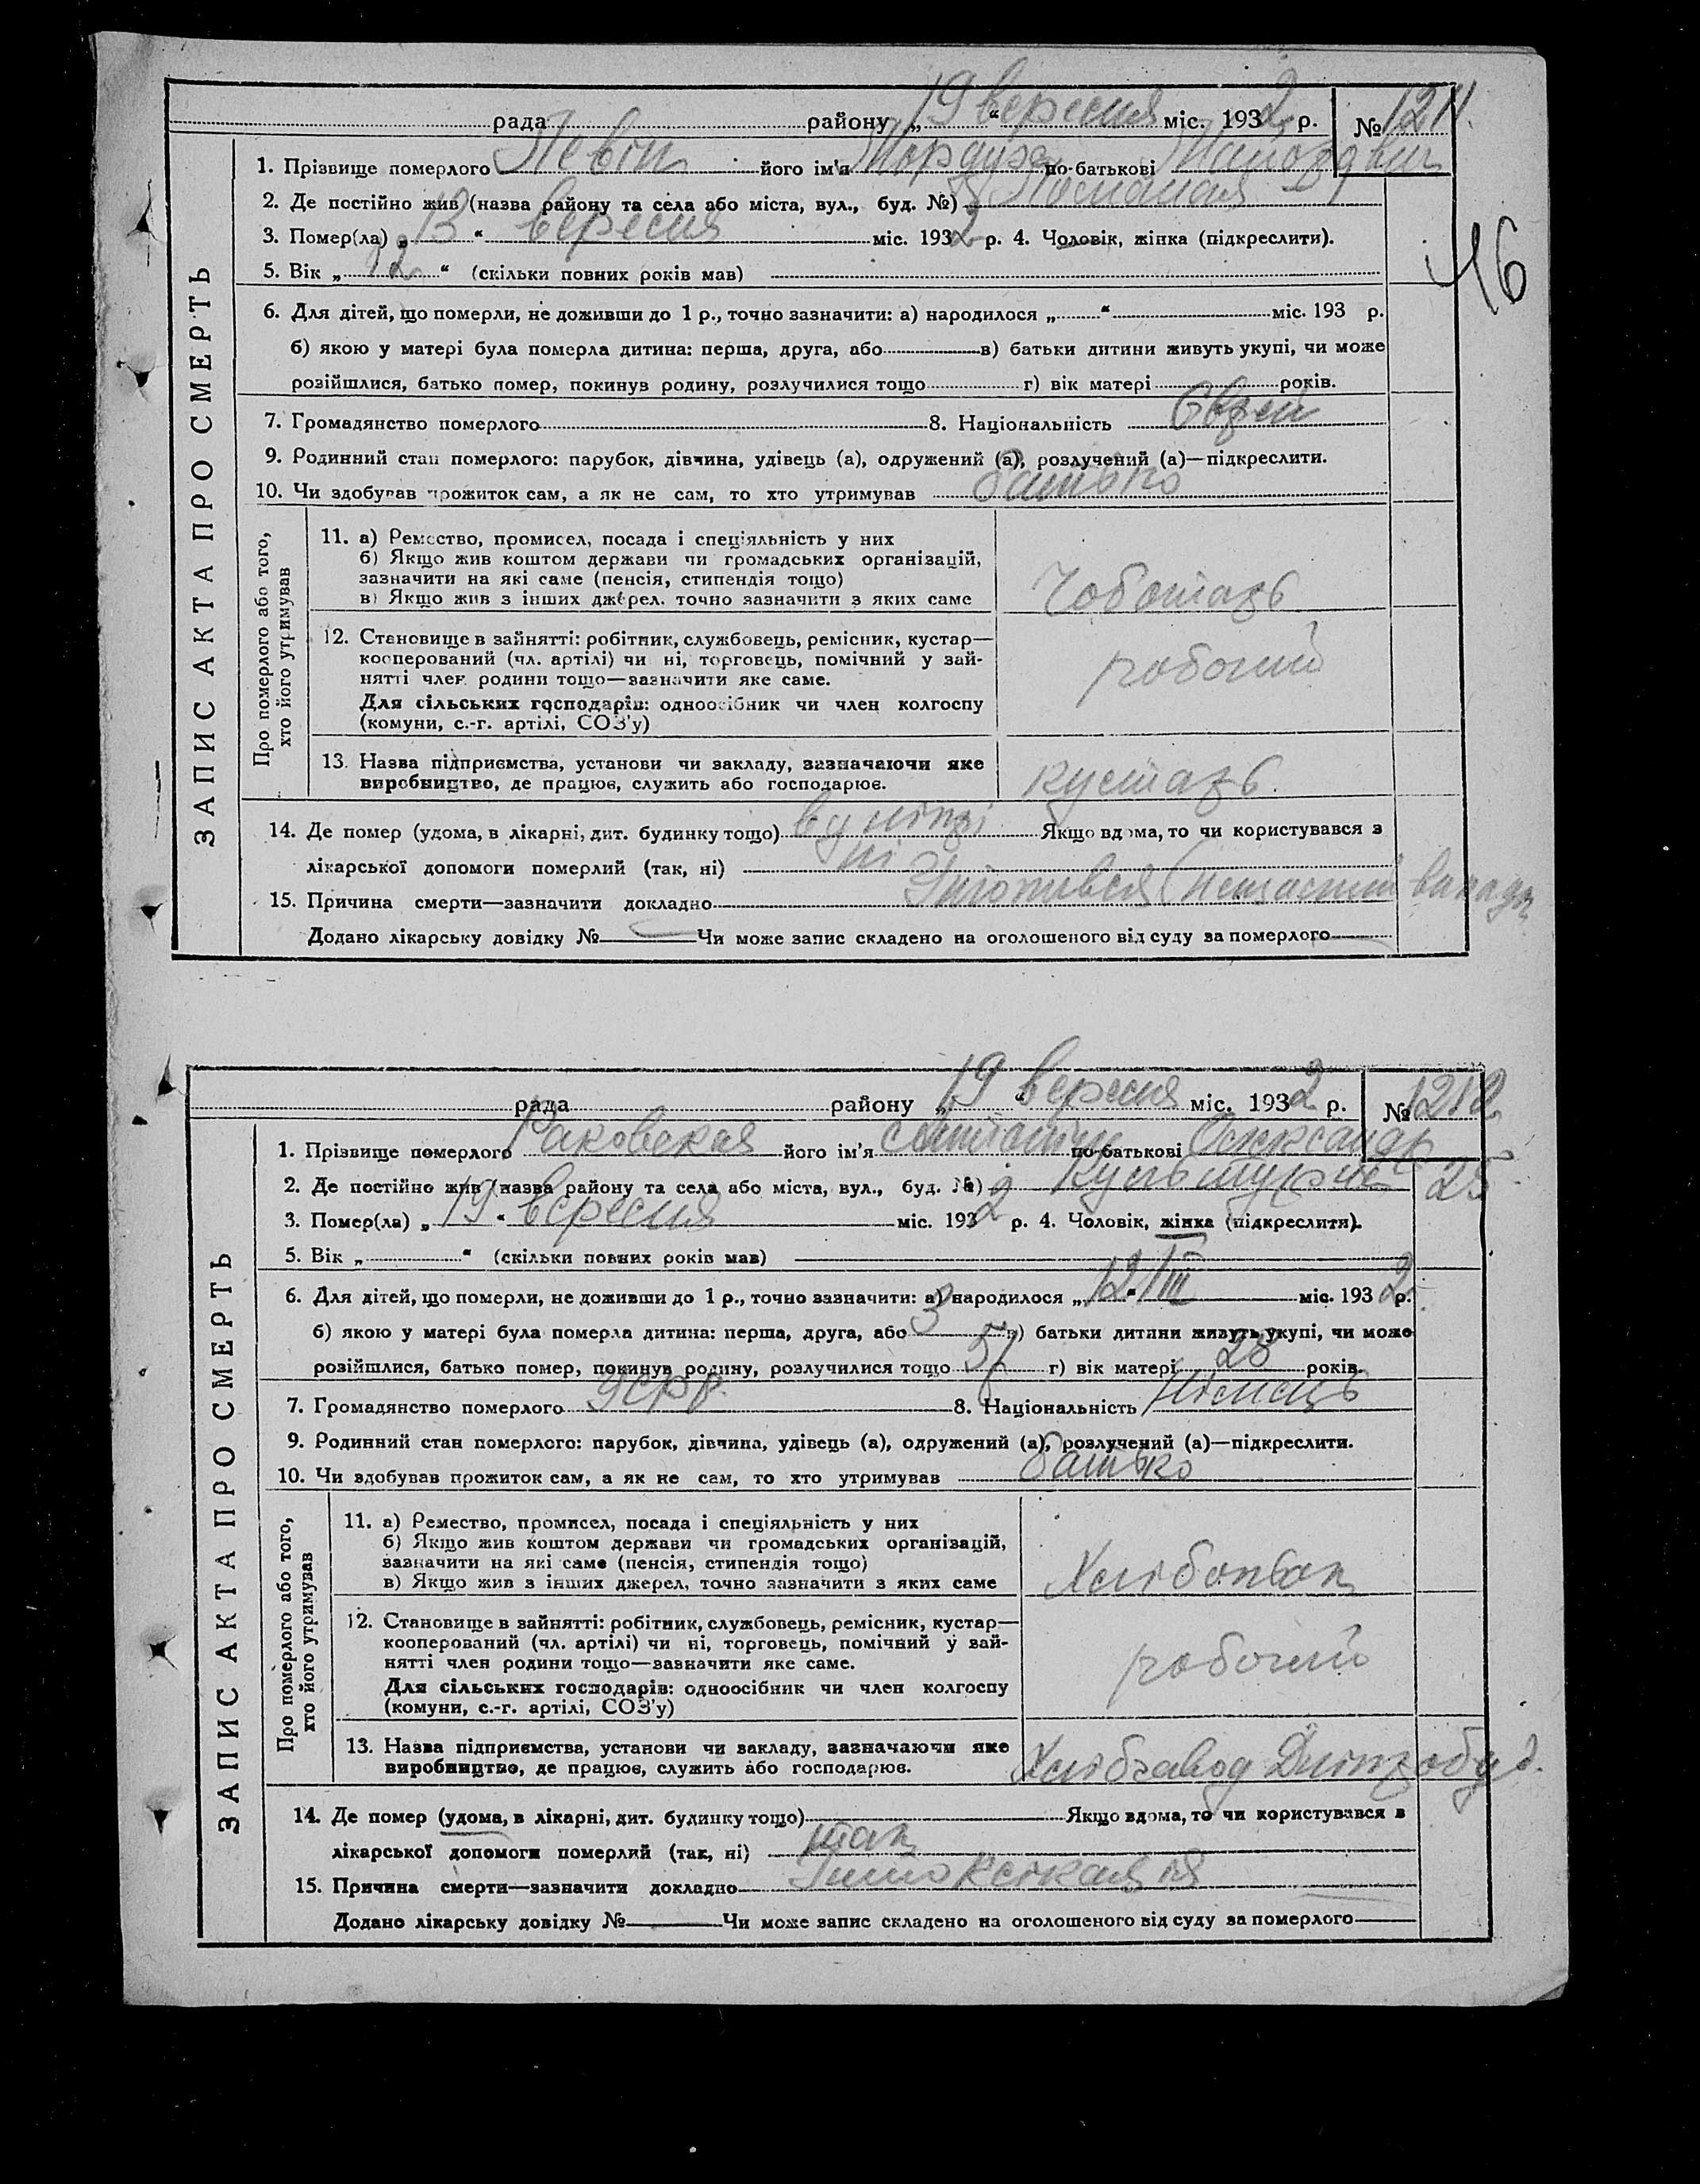 рада району „19“ вересня міс. 1932 р. № 1211.
1. Прізвище померлого Левін його ім'я Мордуха по-батькові
2. Де постійно жив (назва району та села або міста, вул., буд. №)
3. Помер(ла) „13“ вересня міс. 1932 р. 4. Чоловік, жінка (підкреслити).
46
5. Вік „12“ (скільки повних років мав)
6. Для дітей, що померли, не доживши до 1 р., точно зазначити: а) народилося „ “ міс. 193 р.
б) якою у матері була померла дитина: перша, друга, або в) батьки дитини живуть укупі, чи може
розійшлися, батько помер, покинув родину, розлучилися тощо г) вік матері років.
7. Громадянство померлого 8. Національність Єврей
9. Родинний стан померлого: парубок, дівчина, удівець (а), одружений (а), розлучений (а)—підкреслити.
10. Чи здобував прожиток сам, а як не сам, то хто утримував батько
ЗАПИС АКТА ПРО СМЕРТЬ
Про померлого або того,
хто його утримував
11. а) Ремество, промисел, посада і спеціяльність у них
б) Якщо жив коштом держави чи громадських організацій,
зазначити на які саме (пенсія, стипендія тощо)
в) Якщо жив з інших джерел, точно зазначити з яких саме
Чоботарь
12. Становище в зайнятті: робітник, службовець, ремісник, кустар—
кооперований (чл. артілі) чи ні, торговець, помічний у зай-
нятті член родини тощо—зазначити яке саме.
Для сільських господарів: одноосібник чи член колгоспу
(комуни, с.-г. артілі, СОЗ'у)
робочий
13. Назва підприємства, установи чи закладу, зазначаючи яке
виробництво, де працює, служить або господарює.
кустарь.
14. Де помер (удома, в лікарні, дит. будинку тощо) в Дніпрі Якщо вдома, то чи користувався з
лікарської допомоги померлий (так, ні) ні
15. Причина смерти—зазначити докладно Утопився (нещасний випадок
Додано лікарську довідку № Чи може запис складено на оголошеного від суду за померлого
рада району „19“ вересня міс. 1932 р. № 1212
1. Прізвище померлого Раковская його ім'я по-батькові Олександр
2. Де постійно жив (назва району та села або міста, вул., буд. №) Культурне 25
3. Помер(ла) „19“ вересня міс. 1932 р. 4. Чоловік, жінка (підкреслити).
5. Вік „ “ (скільки повних років мав)
6. Для дітей, що померли, не доживши до 1 р., точно зазначити: а) народилося „12“ III міс. 1932 р.
б) якою у матері була померла дитина: перша, друга, або 3 в) батьки дитини живуть укупі, чи може
розійшлися, батько помер, покинув родину, розлучилися тощо г) вік матері 28 років.
7. Громадянство померлого УСРР. 8. Національність Німець
9. Родинний стан померлого: парубок, дівчина, удівець (а), одружений (а), розлучений (а)—підкреслити.
10. Чи здобував прожиток сам, а як не сам, то хто утримував батько
ЗАПИС АКТА ПРО СМЕРТЬ
Про померлого або того,
хто його утримував
11. а) Ремество, промисел, посада і спеціяльність у них
б) Якщо жив коштом держави чи громадських організацій,
зазначити на які саме (пенсія, стипендія тощо)
в) Якщо жив з інших джерел, точно зазначити з яких саме
Хлібопьок
12. Становище в зайнятті: робітник, службовець, ремісник, кустар—
кооперований (чл. артілі) чи ні, торговець, помічний у зай-
нятті член родини тощо—зазначити яке саме.
Для сільських господарів: одноосібник чи член колгоспу
(комуни, с.-г. артілі, СОЗ'у)
робочий
13. Назва підприємства, установи чи закладу, зазначаючи яке
виробництво, де працює, служить або господарює.
Хлібзавод Дніпробуд.
14. Де помер (удома, в лікарні, дит. будинку тощо) Якщо вдома, то чи користувався в
лікарської допомоги померлий (так, ні) так
15. Причина смерти—зазначити докладно
Додано лікарську довідку № Чи може запис складено на оголошеного від суду за померлого